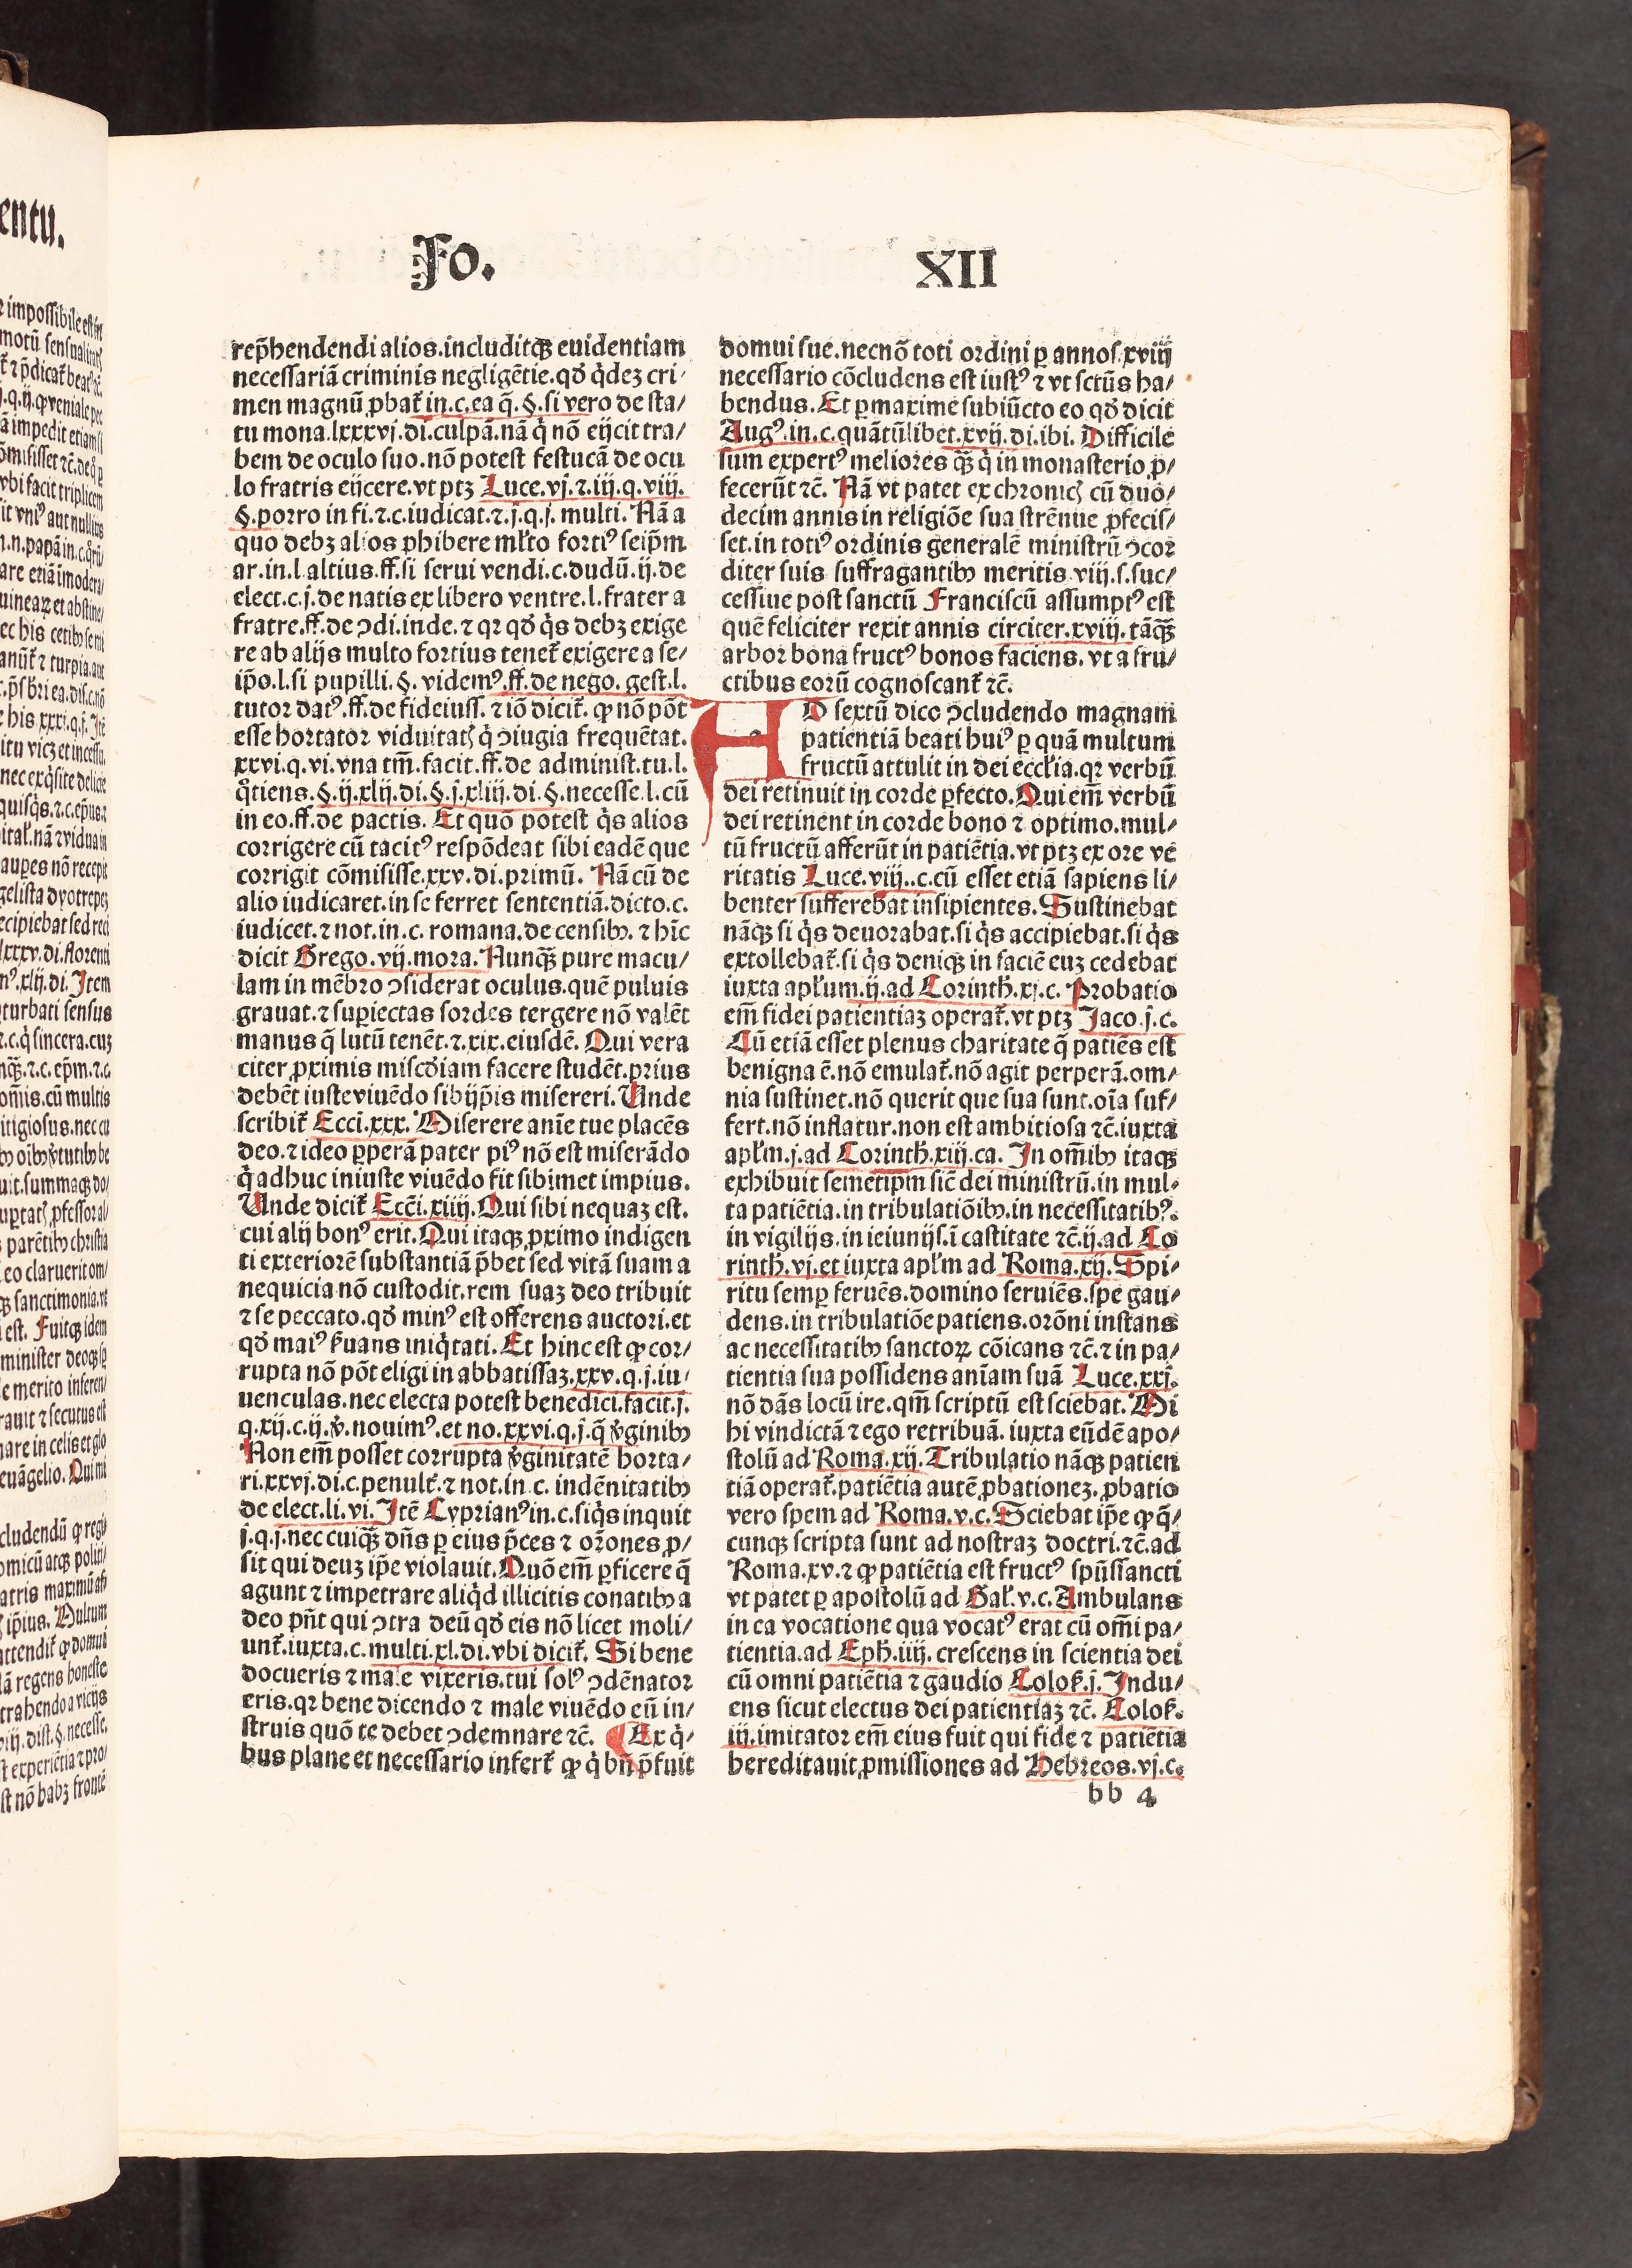 entu.
Fo. XII
rep̄hendendi alios.includitq̄ꝫ euidentiam
necessariā criminis negligētie.qđ q̇dez cri⸗
men magnū ꝓbat̄ in.c.ea q̄.§.si vero de sta/
tu mona.lxxxvj.di.culpā.nā q̇ nō eijcit tra/
bem de oculo suo.nō potest festucā de ocu
lo fratris eijcere.vt ptꝫ Luce.vj.⁊.iij.q.viij.
§.porro in fi.⁊.c.iudicat.⁊.j.q.j. multi. Nā a
quo debꝫ alios ꝓhibere ml̄to fortiꝰ seip̄m
ar.in.l.altius.ff.si serui vendi.c.dudū.ij.de
elect.c.j.de natis ex libero ventre.l.frater a
fratre.ff.de ꝯdi.inde.⁊ qꝛ qđ q̇s debꝫ exige
re ab alijs multo fortius tenet̄ exigere a se/
ip̄o.l.si pupilli.§. videmꝰ.ff.de nego. gest.l.
tutor datꝰ.ff.de fideiuss.⁊ iō dicit̄. ꝙ nō pōt
esse hortator viduitatꝭ q̇ ꝯiugia frequētat.
xxvi.q.vi.vna tm̄.facit.ff.de administ.tu.l.
q̊tiens.§.ij.xlij.di.§.j.xliij.di.§.necesse.l.cū
in eo.ff.de pactis. Et quō potest q̇s alios
corrigere cū tacitꝰ respōdeat sibi eadē que
corrigit cōmisisse.xxv.di.primū. Nā cū de
alio iudicaret.in se ferret sententiā.dicto.c.
iudicet.⁊ not.in.c. romana.de censibꝰ.⁊ hīc
dicit Grego.vij.mora.Nunq̄ꝫ pure macu/
lam in mēbro ꝯsiderat oculus.quē puluis
grauat.⁊ suꝑiectas sordes tergere nō valēt
manus q̄ lutū tenēt.⁊.xix.eiusdē. Qui vera
citer ꝓximis miscđiam facere studēt.prius
debēt iuste viuēdo sibijp̄is misereri. Unde
scribit̄ Ecci.xxx. Miserere anīe tue placēs
deo.⁊ ideo ꝑperā pater piꝰ nō est miserādo
q̇ adhuc iniuste viuēdo fit sibimet impius.
Unde dicit̄ Ecc̄i.xiiij.Qui sibi nequaꝫ est.
cui alij bonꝰ erit.Qui itaqꝫ ꝓximo indigen
ti exteriorē substantiā p̄bet sed vitā suam a
nequicia nō custodit.rem suaꝫ deo tribuit
⁊ se peccato.qđ minꝰ est offerens auctori.et
qđ maiꝰ ẜuans iniq̇tati. Et hinc est ꝙ cor/
rupta nō pōt eligi in abbatissaꝫ.xxv.q.j.iu/
uenculas.nec electa potest benedici.facit.j.
q.xij.c.ij.v̄. nouimꝰ.et no.xxvi.q.j.q̄ v̄ginibꝰ
Non em̄ posset corrupta v̄ginitatē horta/
ri.xxvj.di.c.penult̄.⁊ not.in.c. indēnitatibꝰ
de elect.li.vi. Itē Cyprianꝰ in.c.siq̇s inquit
j.q.j.nec cuiq̄ꝫ dn̄s ꝑ eius p̄ces ⁊ or̄ones ꝓ/
sit qui deuꝫ ip̄e violauit.Quō em̄ ꝑficere q̄
agunt ⁊ impetrare aliq̇d illicitis conatibꝰ a
deo pn̄t qui ꝯtra deū qđ eis nō licet moli/
unt̄.iuxta.c.multi.xl.di.vbi dicit̄. Si bene
docueris ⁊ male vixeris.tui solꝰ ꝯdēnator
eris.qꝛ bene dicendo ⁊ male viuēdo eū in/
struis quō te debet ꝯdemnare ⁊c̄. ¶ Ex q̇/
bus plane et necessario infert̄ ꝙ q̇ bn̄ p̄fuit
domui sue.necnō toti ordini ꝑ annos xviij
necessario cōcludens est iustꝰ ⁊ vt sctūs ha/
bendus. Et ꝑmaxime subiūcto eo qđ dicit
Augꝰ.in.c.quātūlibet.xvij.di.ibi. Difficile
sum expertꝰ meliores q̄ꝫ q̇ in monasterio ꝓ/
fecerūt ⁊c̄. Nā vt patet ex chronicꝭ cū duo/
decim annis in religiōe sua strēnue ꝓfecis/
set.in totiꝰ ordinis generalē ministrū ꝯcor
diter suis suffragantibꝰ meritis viij.s.suc/
cessiue post sanctū Franciscū assumptꝰ est
quē feliciter rexit annis circiter.xviij.tāq̄ꝫ
arbor bona fructꝰ bonos faciens. vt a fru/
ctibus eorū cognoscant̄ ⁊c̄.
AD sextū dico ꝯcludendo magnam
patientiā beati huiꝰ ꝑ quā multum
fructū attulit in dei eccl̄ia.qꝛ verbū
dei retinuit in corde ꝑfecto.Qui em̄ verbū
dei retinent in corde bono ⁊ optimo.mul/
tū fructū afferūt in patiētia.vt ptꝫ ex ore ve
ritatis Luce.viij..c.cū esset etiā sapiens li/
benter sufferebat insipientes. Sustinebat
nāqꝫ si q̇s deuorabat.si q̇s accipiebat.si q̇s
extollebat̄.si q̇s deniqꝫ in faciē euꝫ cedebat
iuxta apl̄um.ij.ad Corinth̄.xj.c. Probatio
em̄ fidei patientiaꝫ operat̄.vt ptꝫ Jaco.j.c.
Cū etiā esset plenus charitate q̄ patiēs est
benigna ē.nō emulat̄.nō agit perperā.om/
nia sustinet.nō querit que sua sunt.oīa suf/
fert.nō inflatur.non est ambitiosa ⁊c̄.iuxta
apl̄m.j.ad Corinth̄.xiij.ca. In om̄ibꝰ itaqꝫ
exhibuit semetipm sic̄ dei ministrū.in mul⸗
ta patiētia.in tribulatiōibꝰ.in necessitatibꝰ.
in vigilijs.in ieiunijs.ī castitate ⁊c̄.ij.ad Co
rinth̄.vj.et iuxta apl̄m ad Roma.xij.Spi/
ritu semꝑ feruēs.domino seruiēs.spe gau/
dens.in tribulatiōe patiens.orōni instans
ac necessitatibꝰ sanctoꝝ cōicans ⁊c̄.⁊ in pa/
tientia sua possidens anīam suā Luce.xxj.
nō dās locū ire.qm̄ scriptū est sciebat. Mi
hi vindictā ⁊ ego retribuā. iuxta eūdē apo/
stolū ad Roma.xij. Tribulatio nāqꝫ patien
tiā operat̄.patiētia autē ꝓbationeꝫ.ꝓbatio
vero spem ad Roma.v.c. Sciebat ip̄e ꝙ q̄/
cunqꝫ scripta sunt ad nostraꝫ doctri.⁊c̄.ad
Roma.xv.⁊ ꝙ patiētia est fructꝰ spūssancti
vt patet ꝑ apostolū ad Gal̄.v.c. Ambulans
in ea vocatione qua vocatꝰ erat cū om̄i pa/
tientia.ad Eph̄.iiij. crescens in scientia dei
cū omni patiētia ⁊ gaudio Coloẜ.j. Indu/
ens sicut electus dei patientiaꝫ ⁊c̄. Coloẜ.
iij.imitator em̄ eius fuit qui fide ⁊ patiētia
hereditauit ꝓmissiones ad Hebreos.vj.c.
bb 4